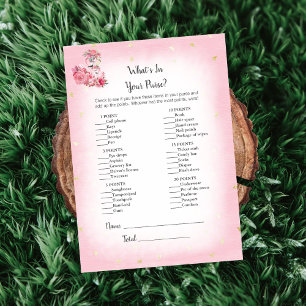 What's In
Your Purse?
Check to see if you have these items in your purse and
add up the points. Whoever has the most points, wins!
1 POINT
Cell phone
Keys
Lipstick
Receipt
Pen
5 POINTS
Eye drops
Aspirin
Grocery list
Driver's license
Tweezers
5 POINTS
Sunglasses
Toothpick
Notebook
Hairband
Gum
10 POINTS
Book
Hair spray
Hand cream
Nail polish
Package of wipes
15 POINTS
Ticket stub
Candy bar
Socks
Diaper
Flash drive
20 POINTS
Underwear
Pic of the mom
Perfume
Passport
Condom
Name
Total